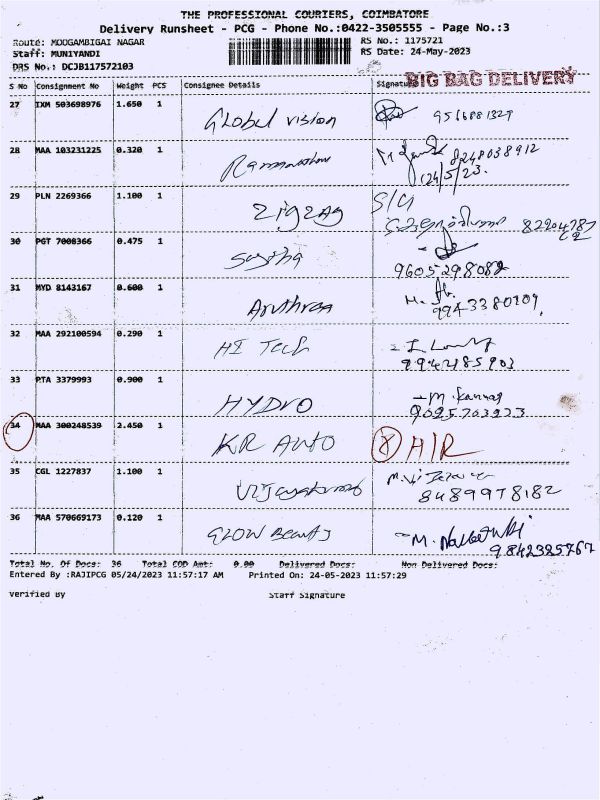 THE PROFESSIONAL COURIERS, COIMBATORE
Delivery Runsheet - PCG - Phone No.:0422-3505555 - Page No.:3
Route: MOOGAMBIGAI NAGAR RS No.: 1175721
Staff: MUNIYANDI RS Date: 24-May-2023
DRS No.: DCJB117572103
BIG BAG DELIVERY
S No Consignment No Weight PCS Consignee Details Signature
27 IXM 503698976 1.650 1 Global vision 9566881329
28 MAA 103231225 0.320 1 8248038912
24/5/23.
29 PLN 2269366 1.100 1 zigzag S/G
30 PGT 7008366 0.475 1
9605298082
31 MYD 8143167 0.600 1 Aruthraa
9943380909
32 MAA 292100594 0.290 1 HI Tech
9942185903
33 RTA 3379993 0.900 1 HYDRO M. Kannag
9025703223
34 MAA 300248539 2.450 1 KR AUTO A/R
35 CGL 1227837 1.100 1
8489978182
36 MAA 570669173 0.120 1 GLOW Beauty M.
9842385767
Total No. Of Docs: 36 Total COD Amt: 0.00 Delivered Docs: Non Delivered Docs:
Entered By :RAJIPCG 05/24/2023 11:57:17 AM Printed On: 24-05-2023 11:57:29
Verified By Staff Signature